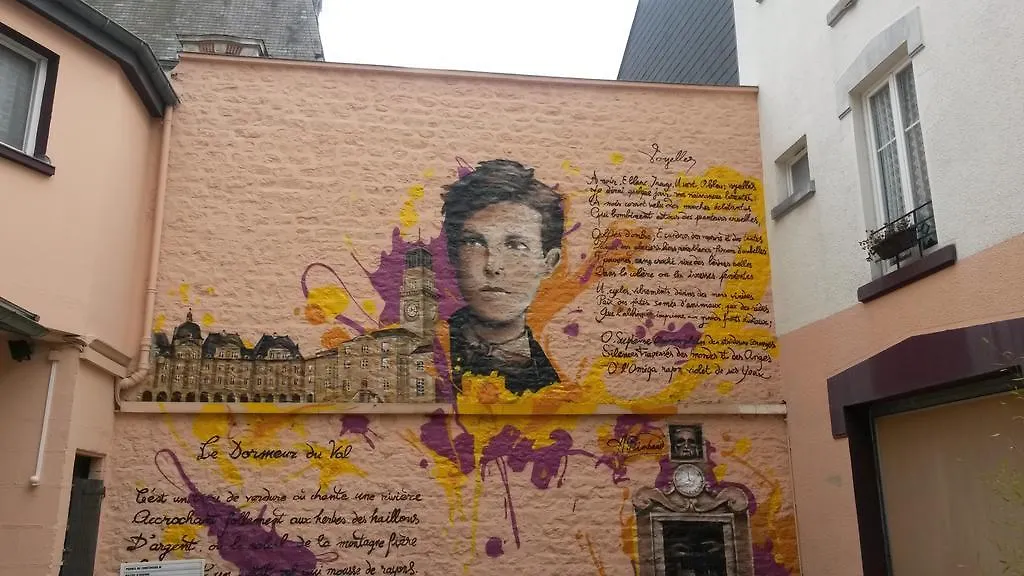 Voyelles
A noir, E blanc, I rouge, U vert, O bleu, voyelles
Je dirai quelque jour vos naissances latentes
A, noir corset velu des mouches éclatantes
Qui bombinent autour des puanteurs cruelles,
Golfes d'ombre; E, candeurs des
Lances des glaciers fiers, rois blancs, frissons d'ombelles
I, pourpres, sang craché, rire des lèvres belles
Dans la colère ou les ivresses pénitentes
U, cycles, vibrements divins des mers virides
Paix des pâtis semés d'animaux, paix des rides
Que l'alchimie imprime aux grands fronts
O, suprême Clairon plein des strideurs étranges
Silences traversés des mondes et des Anges
O l'Oméga rayon violet de ses Yeux
A Rimbaud
Le Dormeur du Val
C'est un trou de verdure où chante une rivière
Accrochant follement aux herbes des haillons
D'argent, où le soleil de la montagne fière
un val qui mousse de rayons.